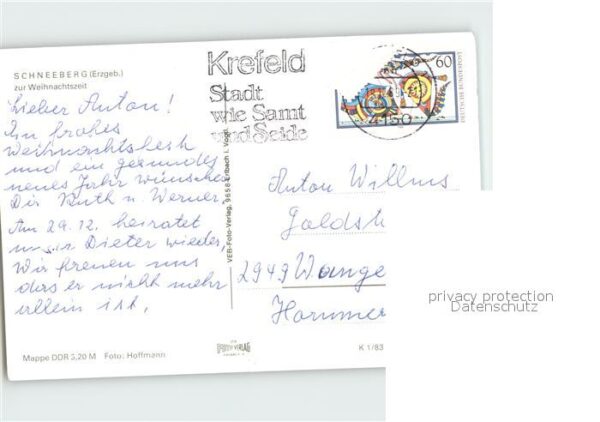 SCHNEEBERG (Erzgeb.)
zur Weihnachtszeit
Lieber Anton!
Ein frohes
Weihnachtsfest
und ein gesundes
neues Jahr wünschen
Dir Ruth u. Werner,
Am 29.12. heiratet
unser Dieter wieder,
Wir freuen uns
dass er nicht mehr
allein ist,
Mappe DDR 3,20 M Foto: Hoffmann
VEB-Foto-Verlag, 9658 Erlbach i. Vogtl.
Krefeld
Stadt
wie Samt
und Seide
4150
60
DEUTSCHE BUNDESPOST
Anton Willms
Golds
2949 Wange
Hammer
FOTO-VERLAG
K 1/83
privacy protection
Datenschutz